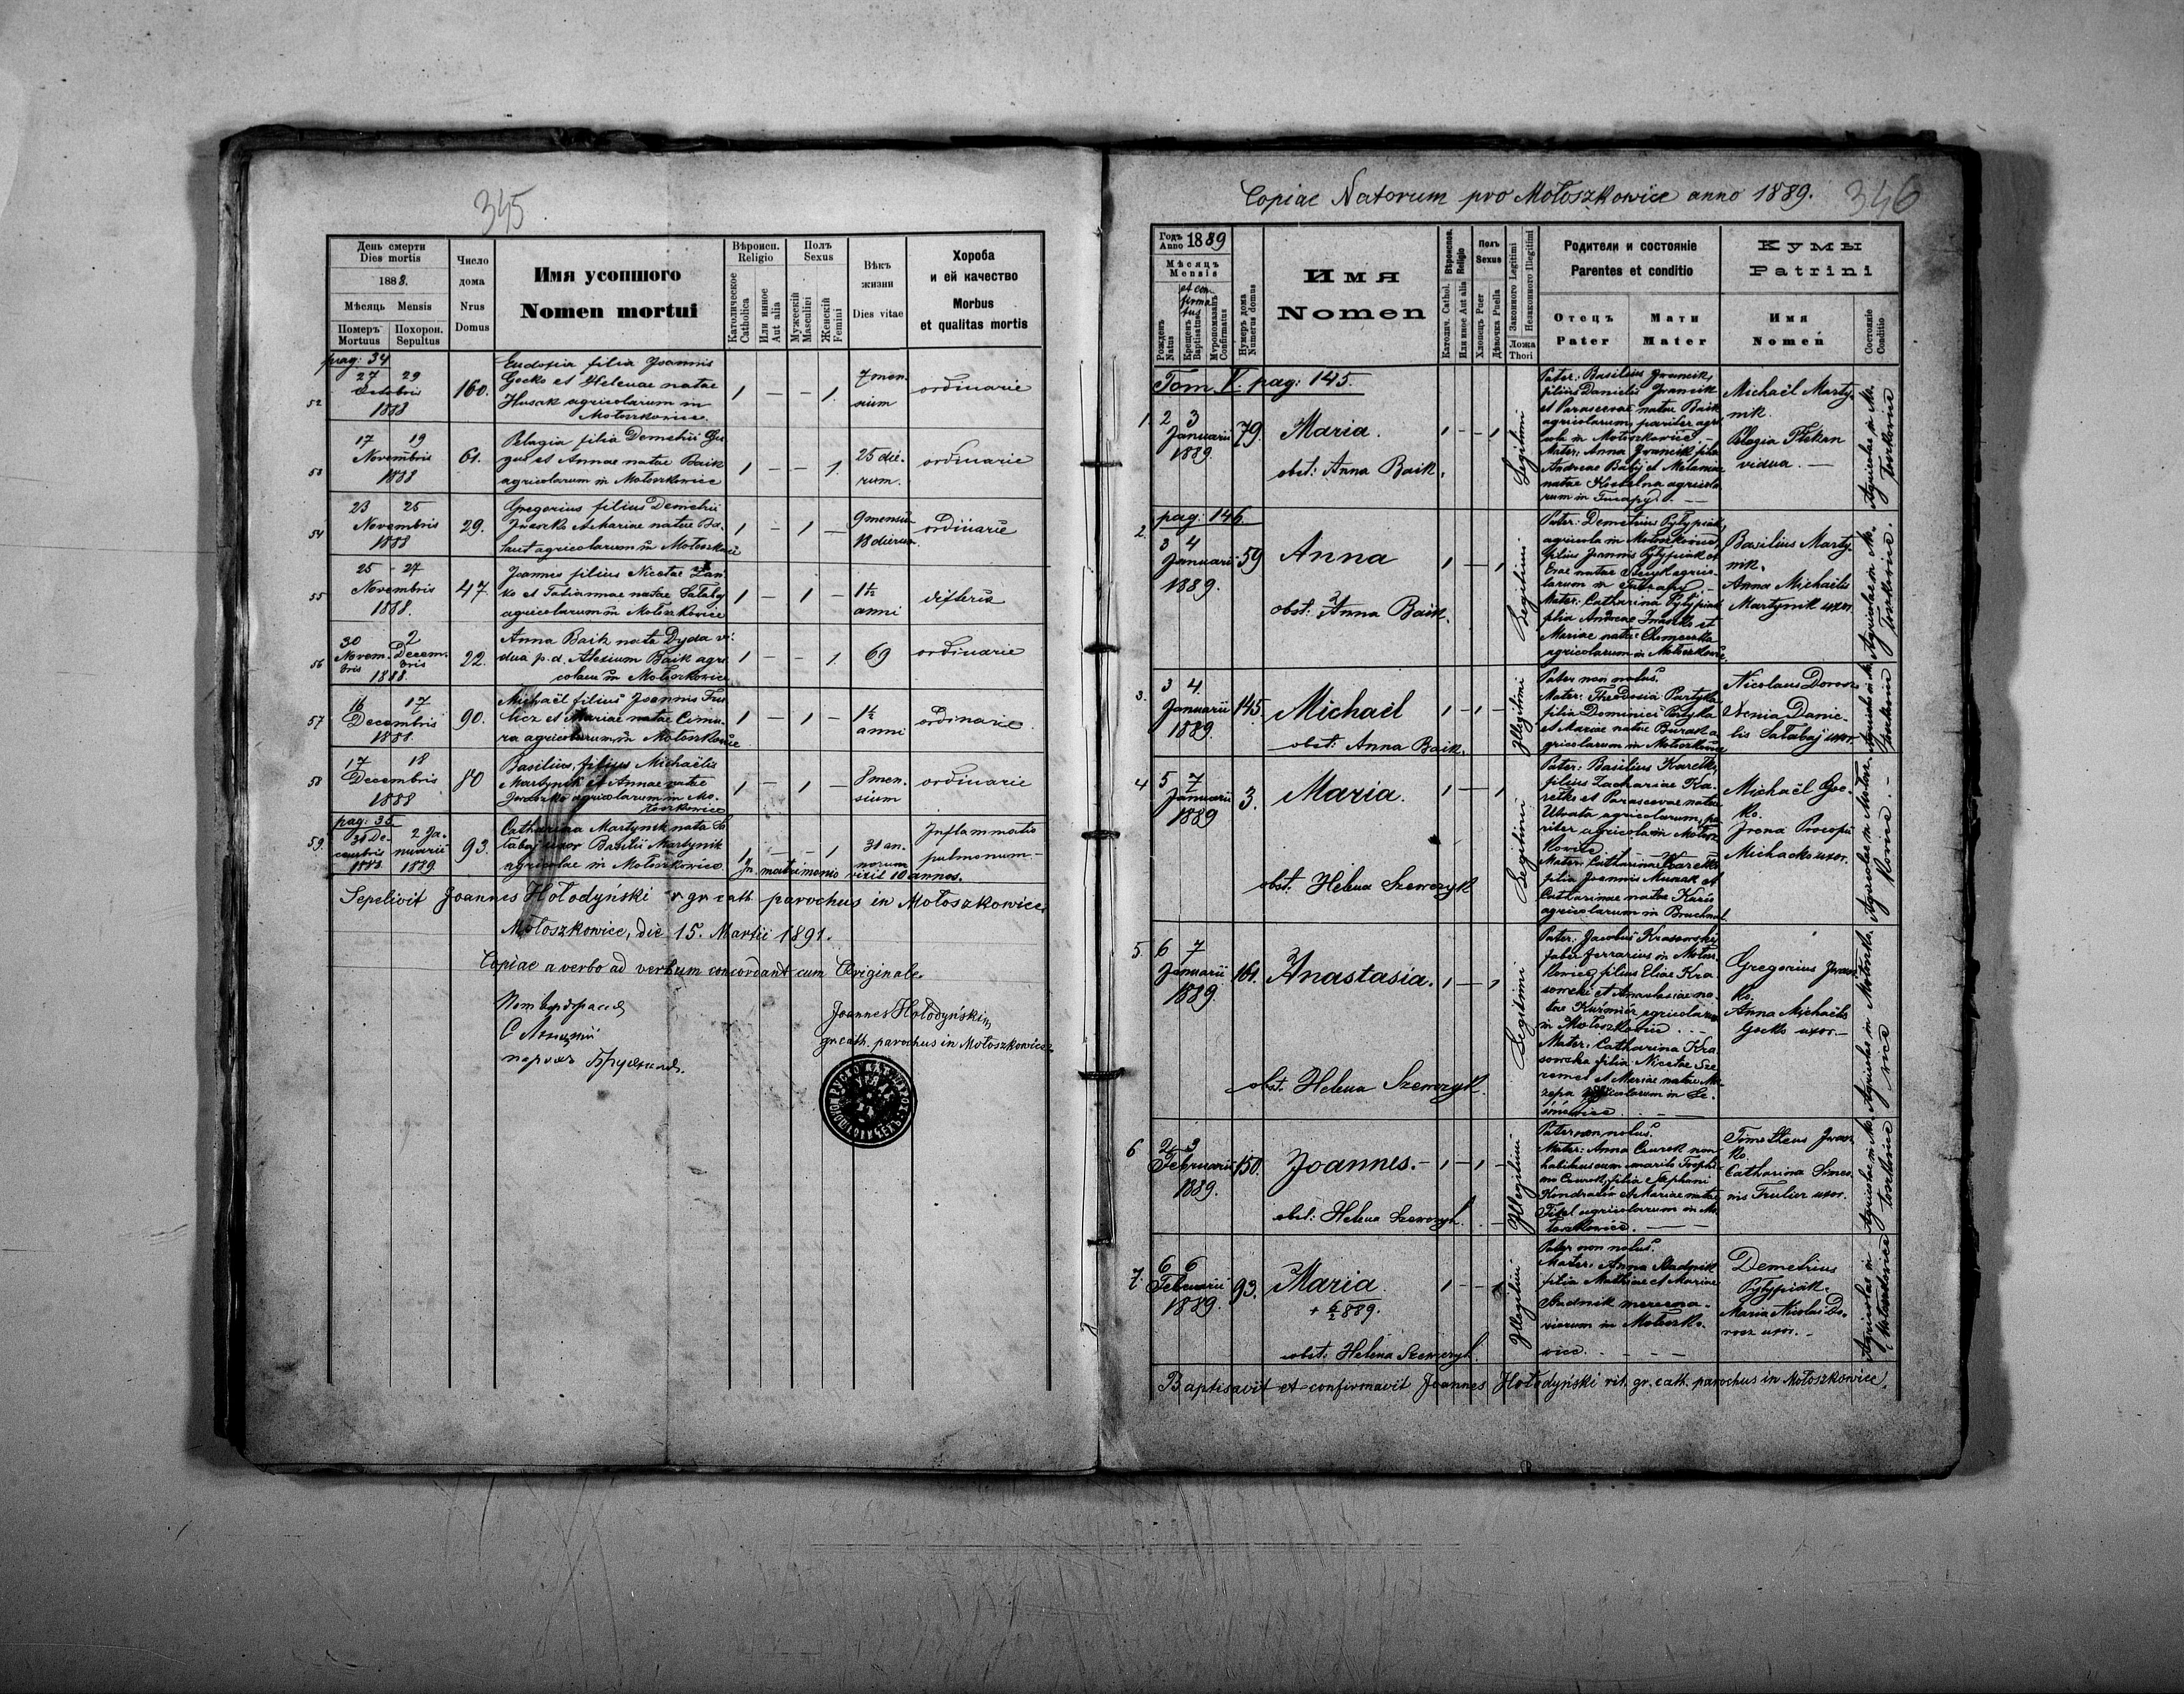 345
День смерти
Dies mortis
1888.
Мѣсяць Mensis
Померъ Mortuus
Похорон. Sepultus
Число дома
Nrus Domus
Имя усопшого
Nomen mortui
Вѣроисп.
Religio
Католическое
Catholica
Или инное
Aut alia
Полъ
Sexus
Мужескій
Masculini
Женскій
Femini
Вѣкъ жизни
Dies vitae
Хороба
и ей качество
Morbus
et qualitas mortis
pag: 34
52
27 29
Octobris
1888
160.
Eudoxia filia Joannis
Gocko et Helenae natae
Husak agricolarum in
Mołoszkowice.
1 – – 1
7 men-
sium
ordinarie
53
17 19
Novembris
1888
61.
Pelagia filia Demetrii
et Annae natae Baik
agricolarum in Mołoszkowice
1 – – 1.
25 die-
rum.
ordinarie
54
23 25
Novembris
1888
29.
Gregorius filius Demetrii
Iwaszko et Mariae natae Ba-
agricolarum in Mołoszkowice
1 – 1 –
9 mensium
18 dierum.
ordinarie
55
25 – 27
Novembris
1888.
47.
Joannes filius Nicetae
et Tatiannae natae Sałabaj
agricolarum in Mołoszkowice
1 – 1 –
1½
anni
difteris
56
30 2
Novem- Decem-
bris bris
1888.
22.
Anna Baik nata Dyda vi-
dua p. d. Alexium Baik agri-
colam in Mołoszkowice
1 – – 1.
69
ordinarie
57
16 17
Decembris
1888.
90.
Michaël filius Joannis Fru-
licz et Mariae natae
agricolarum in Mołoszkowice
1 – 1 –
1½
anni
ordinarie
58
17 18
Decembris
1888
80
Basilius, filius Michaëlis
Martynik et Annae natae
Iwaszko agricolarum in Mo-
łoszkowice
1 – 1 –
8 men-
sium
ordinarie
pag: 35
59
31 De- 2 Ja-
cembris nuarii
1888. 1889.
93.
Catharina Martynik nata Sa-
łabaj uxor Basilii Martynik
agricolae in Mołoszkowice
1 – – 1
31 an-
norum
In matrimonio vixit 10 annos.
Inflammatio
pulmonum
Sepelivit Joannes Hołodyński r. gr. cath. parochus in Mołoszkowice.
Mołoszkowice, die 15. Martii 1891.
Copiae a verbo ad verbum concordant cum Originale.
Joannes Hołodyński
gr. cath. parochus in Mołoszkowice
Copiae Natorum pro Mołoszkowice anno 1889.
346
Годъ
Anno 1889
Мѣсяцъ
Mensis
Рожденъ
Natus
et con-
firma-
tus
Крещенъ
Baptisatus
Муропомазанъ
Confirmatus
Нумеръ дома
Numerus domus
Имя
Nomen
Вѣроиспов.
Religio
Католич. Cathol.
Или инное Aut alia
Полъ
Sexus
Хлопецъ Puer
Дѣвочка Puella
Законного Legitimi
Незаконного Illegitimi
Ложа
Thori
Родители и состояніе
Parentes et conditio
Отецъ
Pater
Мати
Mater
Кумы
Patrini
Имя
Nomen
Состояніе
Conditio
Tom V. pag: 145.
1.
2 3
Januarii
1889.
79.
Maria.
obst: Anna Baik.
1 – – 1
Legitimi
Pater: Basilius Iwancik,
filius Danielis Iwancik
et Parascevae natae Baik
agricolarum, pariter agri-
cola in Mołoszkowice.
Mater: Anna Iwancik filia
Andreae Babij et Melaniae
natae agricola-
rum in
Michaël Marty-
nik.
Pelagia
vidua. –
Agricolae in Mo-
łoszkowice
pag: 146.
2.
3 4
Januarii
1889.
59
Anna
obst: Anna Baik.
1 – – 1
Legitimi
Pater: Demetrius Pyłypiak,
agricola in Mołoszkowice,
filius Joannis Pyłypiak et
Evae natae agrico-
larum in
Mater: Catharina Pyłypiak
filia Andreae Iwaszko et
Mariae natae
agricolarum in Mołoszkowice.
Basilius Marty-
nik.
Anna Michaëlis
Martynik uxor.
Agricolae in Mo-
łoszkowice.
3.
3 4.
Januarii
1889.
145.
Michaël
obst: Anna Baik.
1 – 1 –
Illegitimi
Pater non notus.
Mater: Theodosia Partyka
filia Dominici Partyka
et Mariae natae Burak a-
gricolarum in Mołoszkowice
Nicolaus Dorosz
Xenia Danie-
lis Sałabaj uxor.
4
5 7
Januarii
1889
3.
Maria.
obst. Helena Szewczyk
1 – – 1
Legitimi
Pater: Basilius Karetko,
filius Zachariae Ka-
retko et Parascevae natae
Utrata agricolarum, pa-
riter agricola in Mołosz-
kowice
Mater: Catharina Karetko
filia Joannis et
Catharinae natae
agricolarum in Bruchnal
Michaël Goc-
ko.
Irena Procopii
Michacko uxor.
5.
6 7
Januarii
1889.
161.
Anastasia.
obst. Helena Szewczyk
1 – – 1
Legitimi
Pater: Jacobus Krasowski,
faber ferrarius in Mołosz-
kowice, filius Eliae Kra-
sowski et Anastasiae na-
tae agricolarum
in Mołoszkowice. – –
Mater: Catharina Kra-
sowska filia Nicetae Sze-
remet et Mariae natae Ma-
zepa agricolarum in
Gregorius Iwasz-
ko.
Anna Michaëlis
Gocko uxor. –
6
2 3
Februarii
1889.
150.
Joannes. –
obst: Helena Szewczyk.
1 – 1 –
Illegitimi
Pater non notus.
Mater: Anna Czurok non
habitans cum marito
Czurok, filia Stephani
et Mariae natae
agricolarum in Mo-
łoszkowice. –
Timotheus Iwasz-
ko.
Catharina
Frulicz uxor.
7.
6 6
Februarii
1889.
93.
Maria
+ 6/2 889.
obst: Helena Szewczyk.
1 – – 1
Illegitimi
Pater non notus.
Mater: Anna Stadnik
filia Mathiae et Mariae
Stadnik mercena-
riorum in Mołoszko-
wice. – – –
Demetrius
Pyłypiak.
Maria Nicolai Do-
rosz uxor. –
Agricolae in
Mołoszkowice
Baptisavit et confirmavit Joannes Hołodyński rit. gr. cath. parochus in Mołoszkowice.